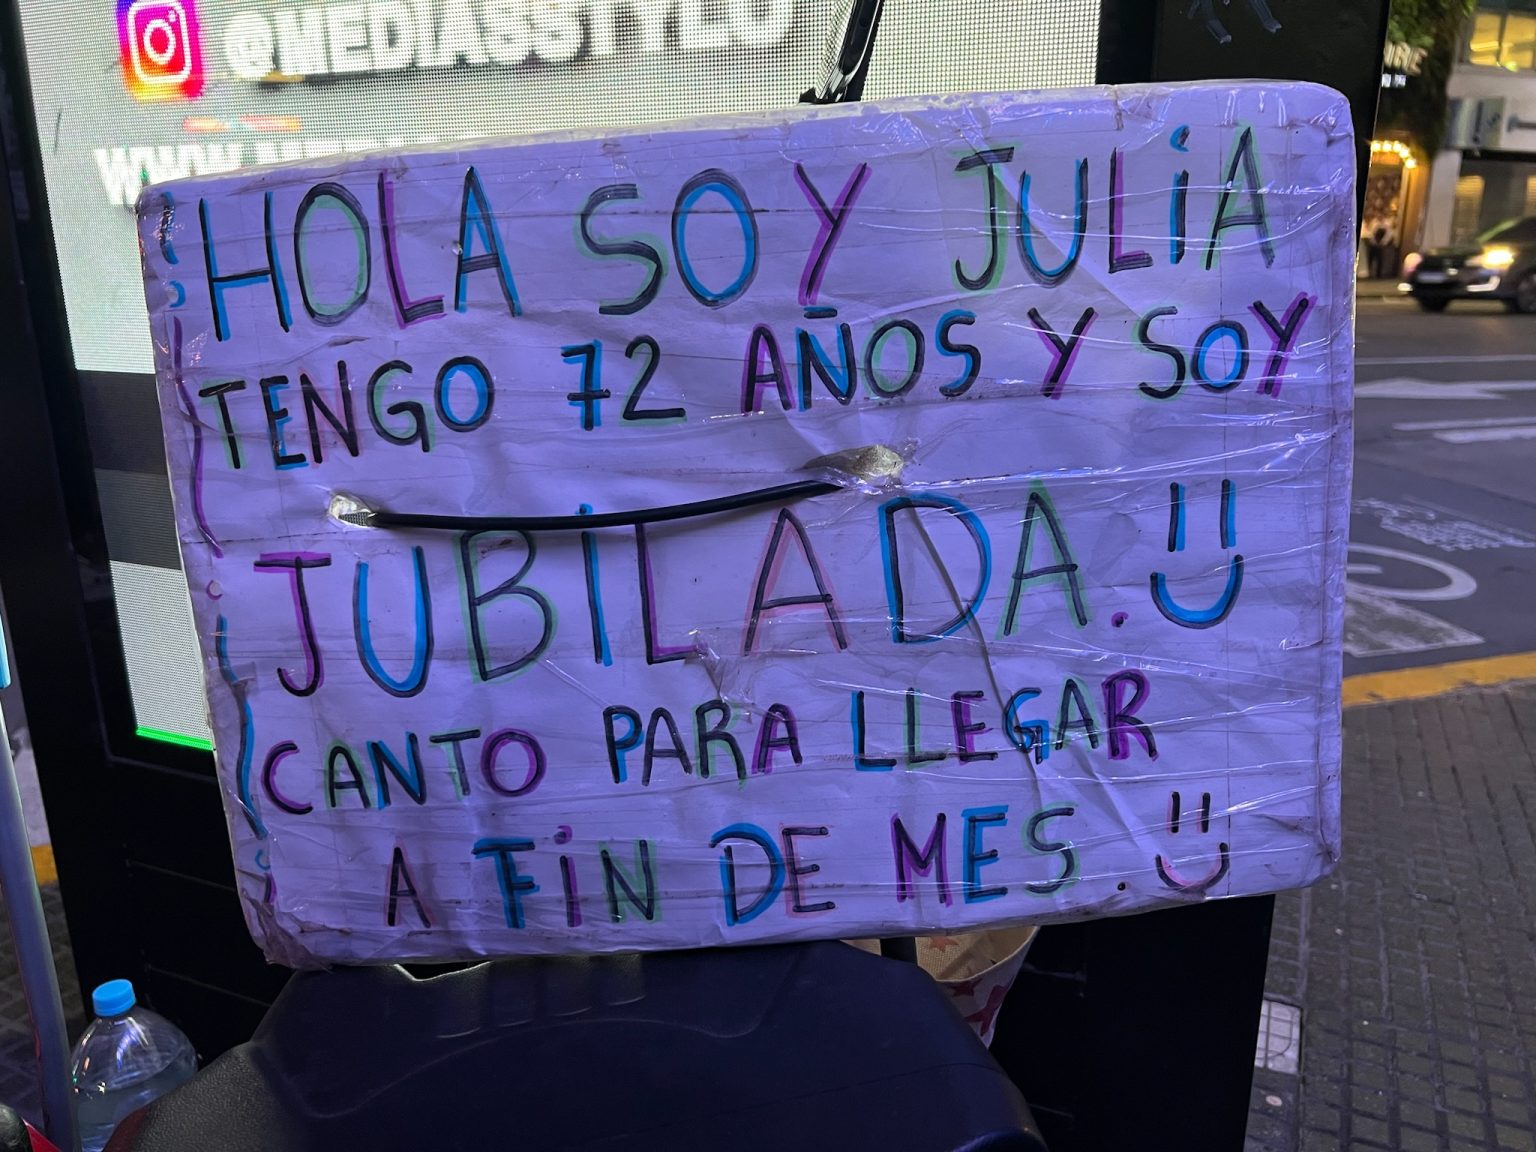 @MEDIASSTYLO
WWW.
¡HOLA SOY JULIA
TENGO 72 AÑOS Y SOY
JUBILADA. :)
CANTO PARA LLEGAR
A FIN DE MES :)